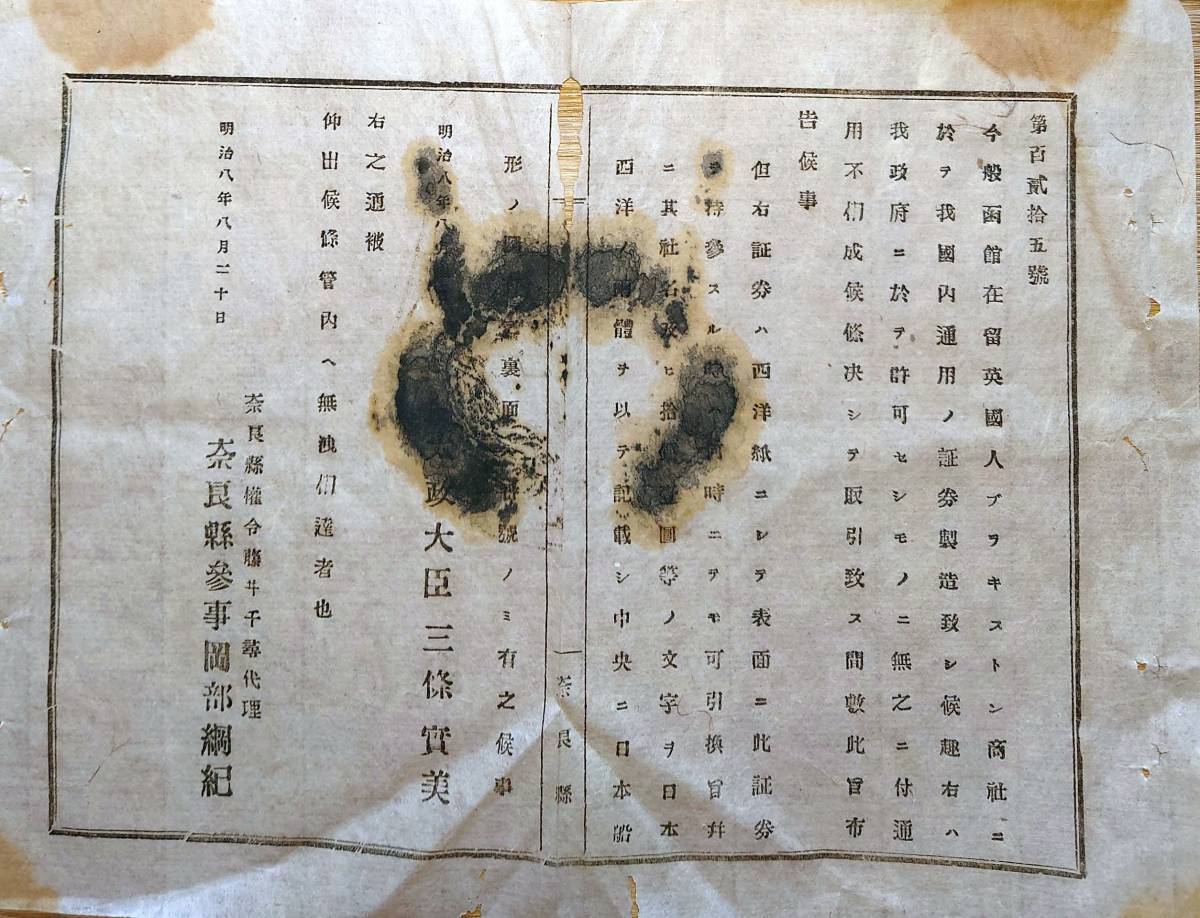 第百貳拾五號
今般函館在留英國人ブラキストン商社ニ
於テ我國內通用ノ証券製造致シ候趣右ハ
我政府ニ於テ許可セシモノニ無之ニ付通
用不們成候條决シテ取引致ス間敷此旨布
告候事
但右証券ハ西洋紙ニシテ表面ニ此証券
ヲ持參スル時ハ何時ニテモ可引換旨幷
ニ其社名及ヒ拾圓等ノ文字ヲ日本
西洋ノ體ヲ以テ記載シ中央ニ日本船
形ノ裏面號ノミ有之候事
奈良縣
明治八年八
政大臣三條實美
右之通被
仰出候條管內ヘ無洩們達者也
明治八年八月二十日
奈良縣權令藤井千尋代理
奈良縣參事岡部綱紀